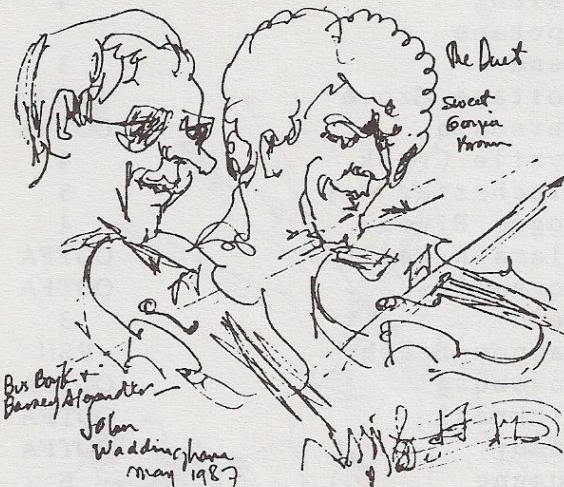 The Duet
Sweet
Georgia
Brown
Bus Boyk +
Barney Alexander
John
Waddingham
may 1987